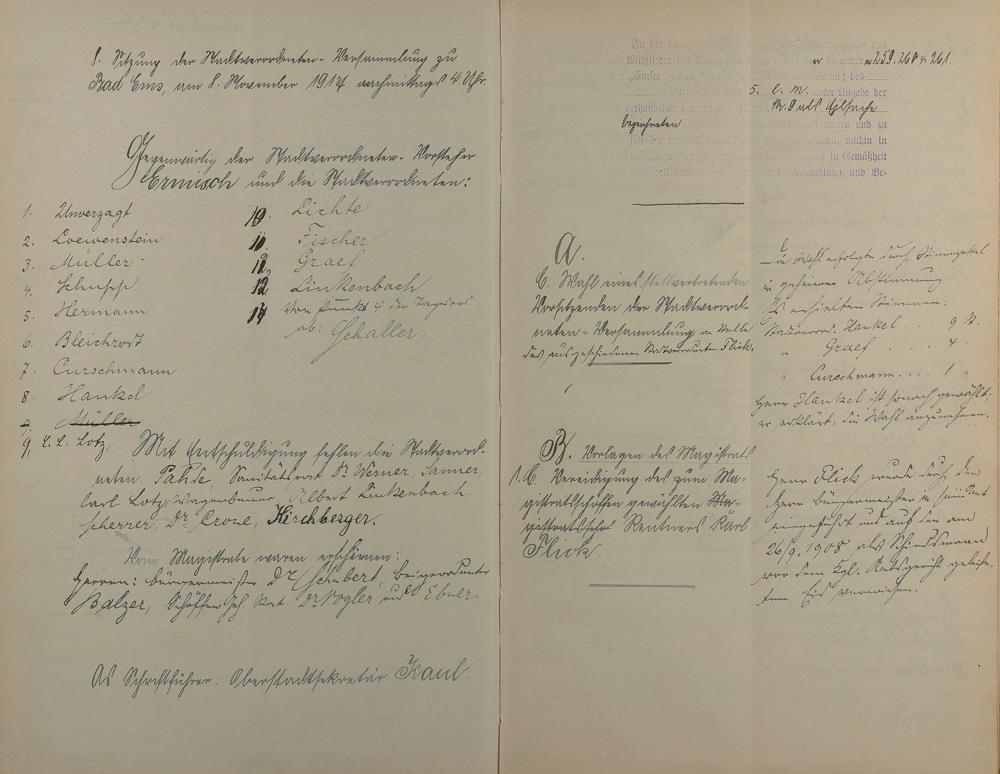 8. Sitzung der Stadtverordneten-Versammlung zu
Bad Ems, am 8. November 1917. nachmittags 4 Uhr.
Gegenwärtig der Stadtverordneten-Vorsteher
Ermisch und die Stadtverordneten:
1. Unverzagt
2. Loewenstein
3. Müller
4. Schupp
5. Hermann
6. Bleichrodt
7. Curschmann
8. Hankel
9. Müller
9. C. L. Lotz,
10. Lichte
11. Fischer
12. Graef
13. Linkenbach
14 Von Punkt 4 der Tagesord.
ab: Schaller.
Mit Entschuldigung fehlen die Stadtverord-
neten, Pahde, Sanitätsrat Dr Werner, Sanner,
Carl Lotz, Wagenbauer, Albert Linkenbach,
Scherrer, Dr. Crone, Kirchberger.
Vom Magistrate waren erschienen:
Herren: Bürgermeister Dr Schubert, Beigeordneter
Balzer, Schöffen Geh. Rat Dr Vogler und Ebner.
Als Schriftführer: Oberstadtsekretär Kaul.
259. 260 u. 261.
5. l. M.
unter Angabe der
Nr. 9 als Eilsache
bezeichneten
und zu
mithin in
in Gemäßheit
und Be-
A.
C. Wahl eines stellvertretenden
Vorsitzenden der Stadtverord-
neten-Versammlung an Stelle
des ausgeschiedenen Stadtverordneten Flick.
Die Wahl erfolgte durch Stimmzettel
in geheimer Abstimmung
Es erhielten Stimmen:
Stadtverord. Hankel . . . 9 St.
" Graef . . . 4 "
" Curschmann . . . 1 "
Herr Hankel ist sonach gewählt;
er erklärt, die Wahl anzunehmen.
B. Vorlagen des Magistrats
1. C. Vereidigung des zum Ma-
gistratsschöffen gewählten
Rentners Karl
Flick.
Herr Flick wurde durch den
Herrn Bürgermeister in sein Amt
eingeführt und auf den am
26/9. 1908 als Schiedsmann
vor dem Kgl. Amtsgericht geleiste-
ten Eid verwiesen.